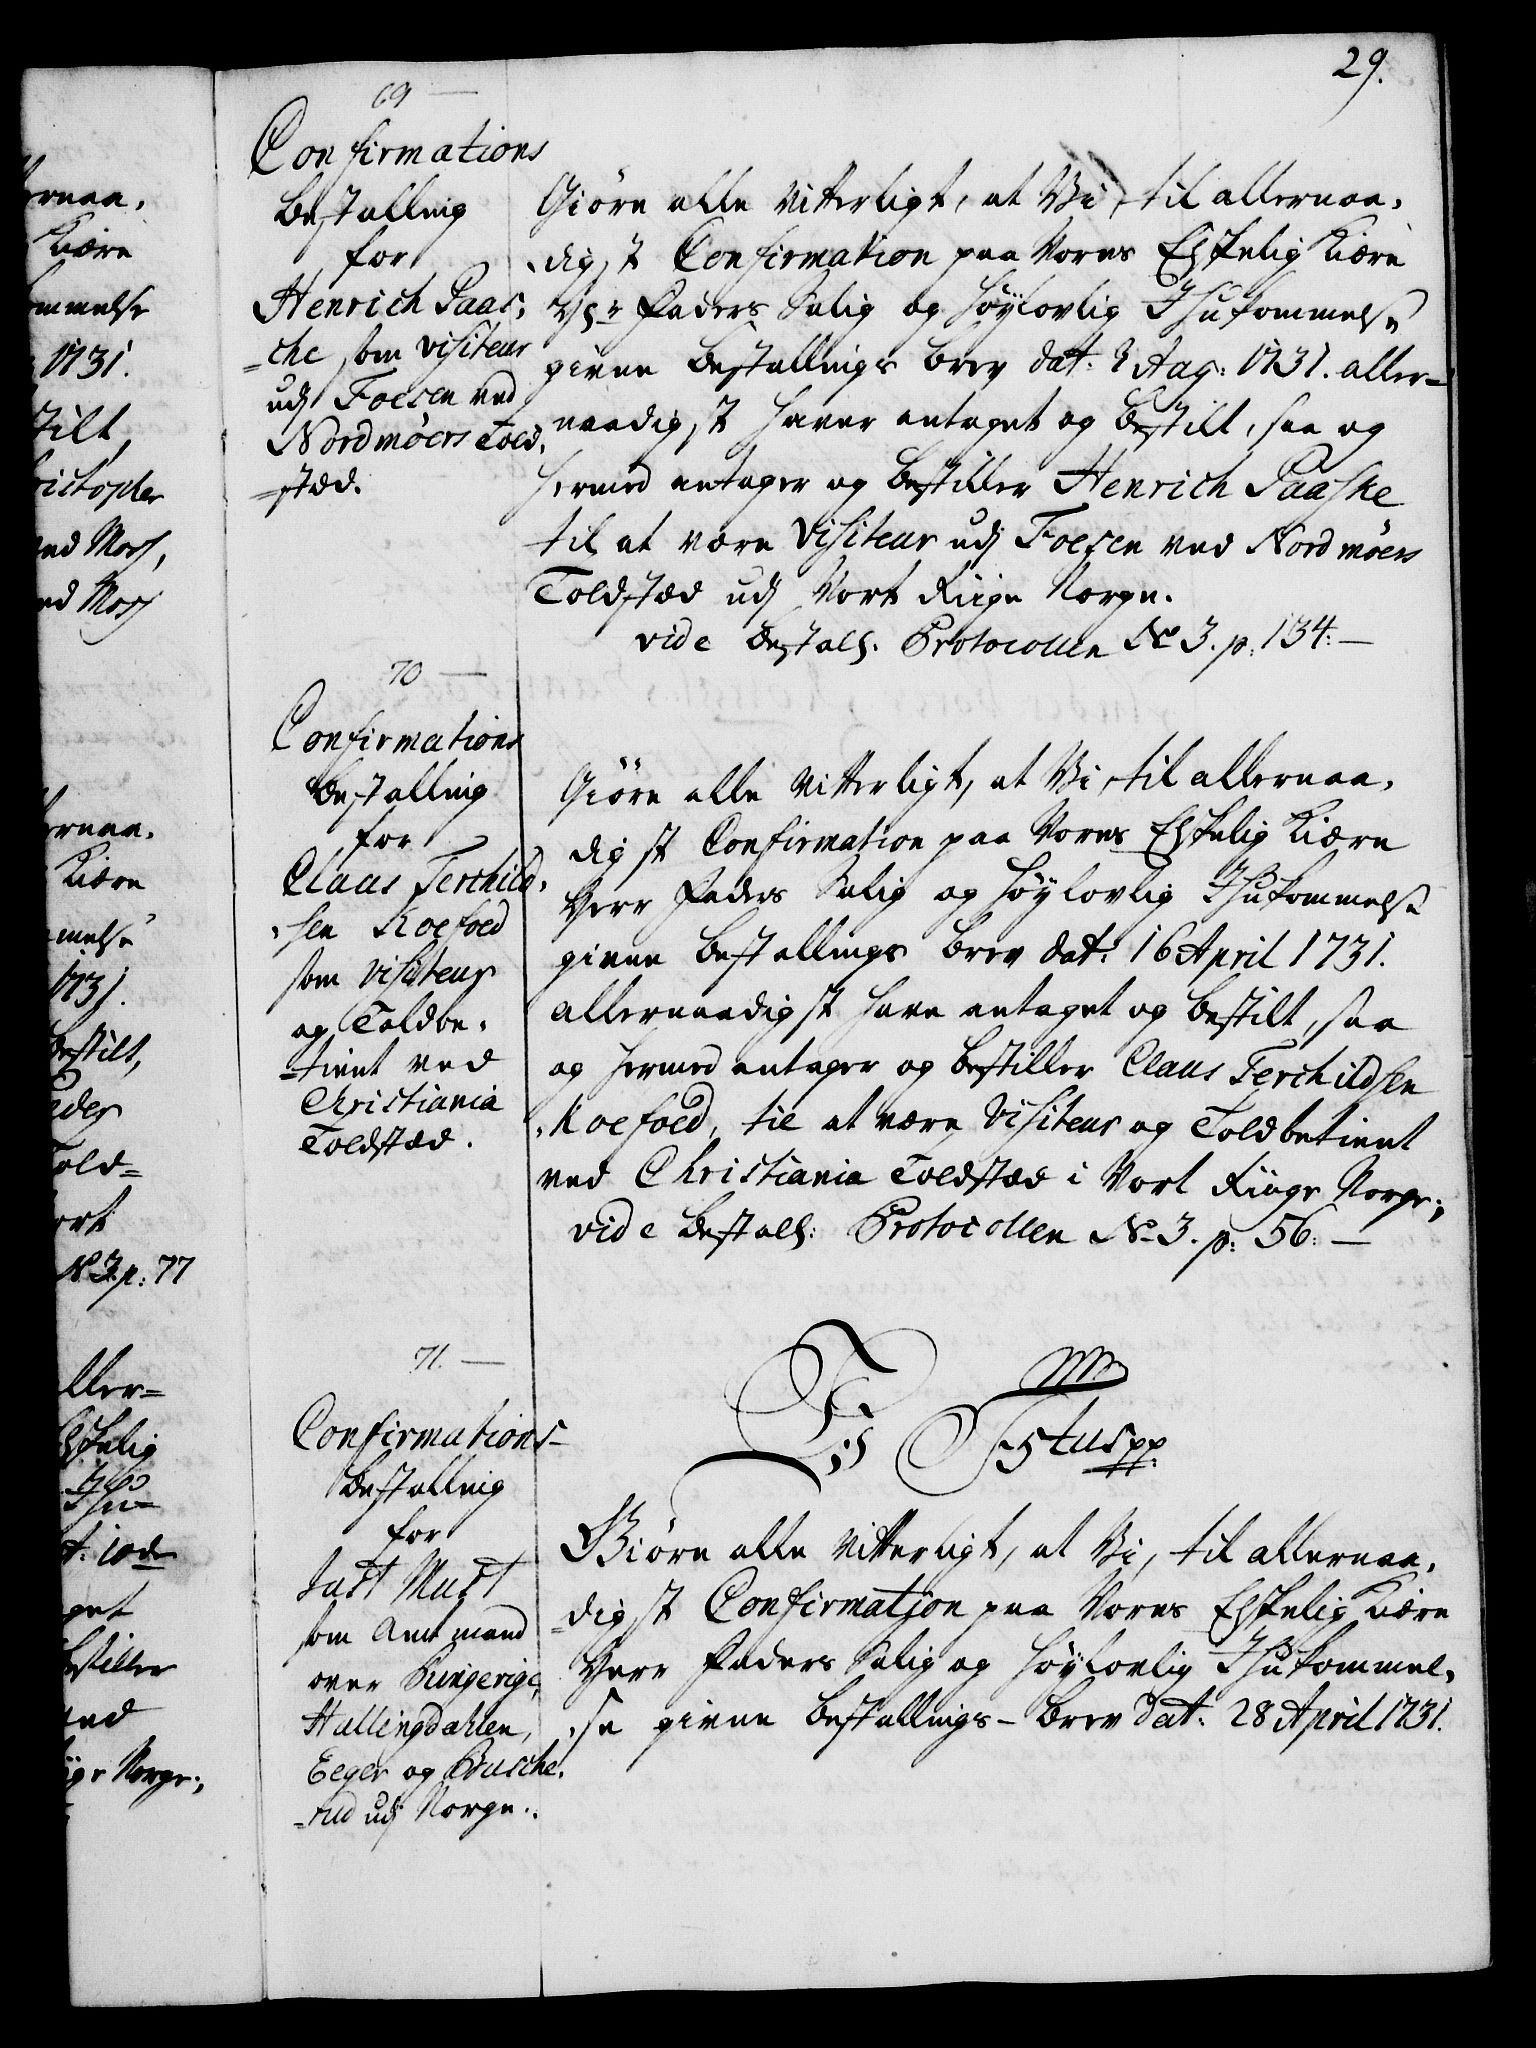 29.
69
Confirmations
Bestalling
for
Henrich Paas,
=che som visiteur
udj Foesen ved
Nordmöers Told,
=stæd.
Giöre alle vitterligt, at Vi, til allernaa,
,digst Confirmation paa Vores Elskelig Kiære
Hr Faders Salig og Höylovlig Ihukommelse
givne Bestallings Brev dat: 3 Aug: 1731. aller=
naadigst haver antaget og bestilt, saa og
hermed antager og bestiller Henrich Paaske
til at være Visiteur udj Foesen ved Nordmöers
Toldstæd udj Vort Riige Norge.
vide Bestall. Protocollen No 3. p: 134:
70
Confirmations
Bestalling
for
Claus Terchild,
,sen Koefoed
som visiteur
og Toldbe,
=tient ved
Christiania
Toldstæd.
Giöre alle vitterligt, at Vi, til allernaa,
digst Confirmation paa Vores Elskelig Kiære
Herr Faders Salig og Höylovlig Ihukommelse
givne Bestallings Brev dat: 16 April 1731.
allernaadigst have antaget og bestilt, saa
og hermed antager og bestiller Claus Terchildsen
,Koefoed, til at være Visiteur og Toldbetient
ved Christiania Toldstæd i Vort Riige Norge;
vide Bestall: Protocollen No 3. p: 56:
71.
Confirmations-
Bestalling
for
Just Must
som Amtmand
over Ringerige,
Hallingdahlen,
Eeger og Busche,
=rud udj Norge.
C. 6tus pp.
Giöre alle vitterligt, at Vi, til allernaa,
=digst Confirmation paa Vores Elskelig Kiære
Herr Faders Salig og Höylovlig Ihukommel,
,se givne Bestallings-Brev dat: 28 April 1731.